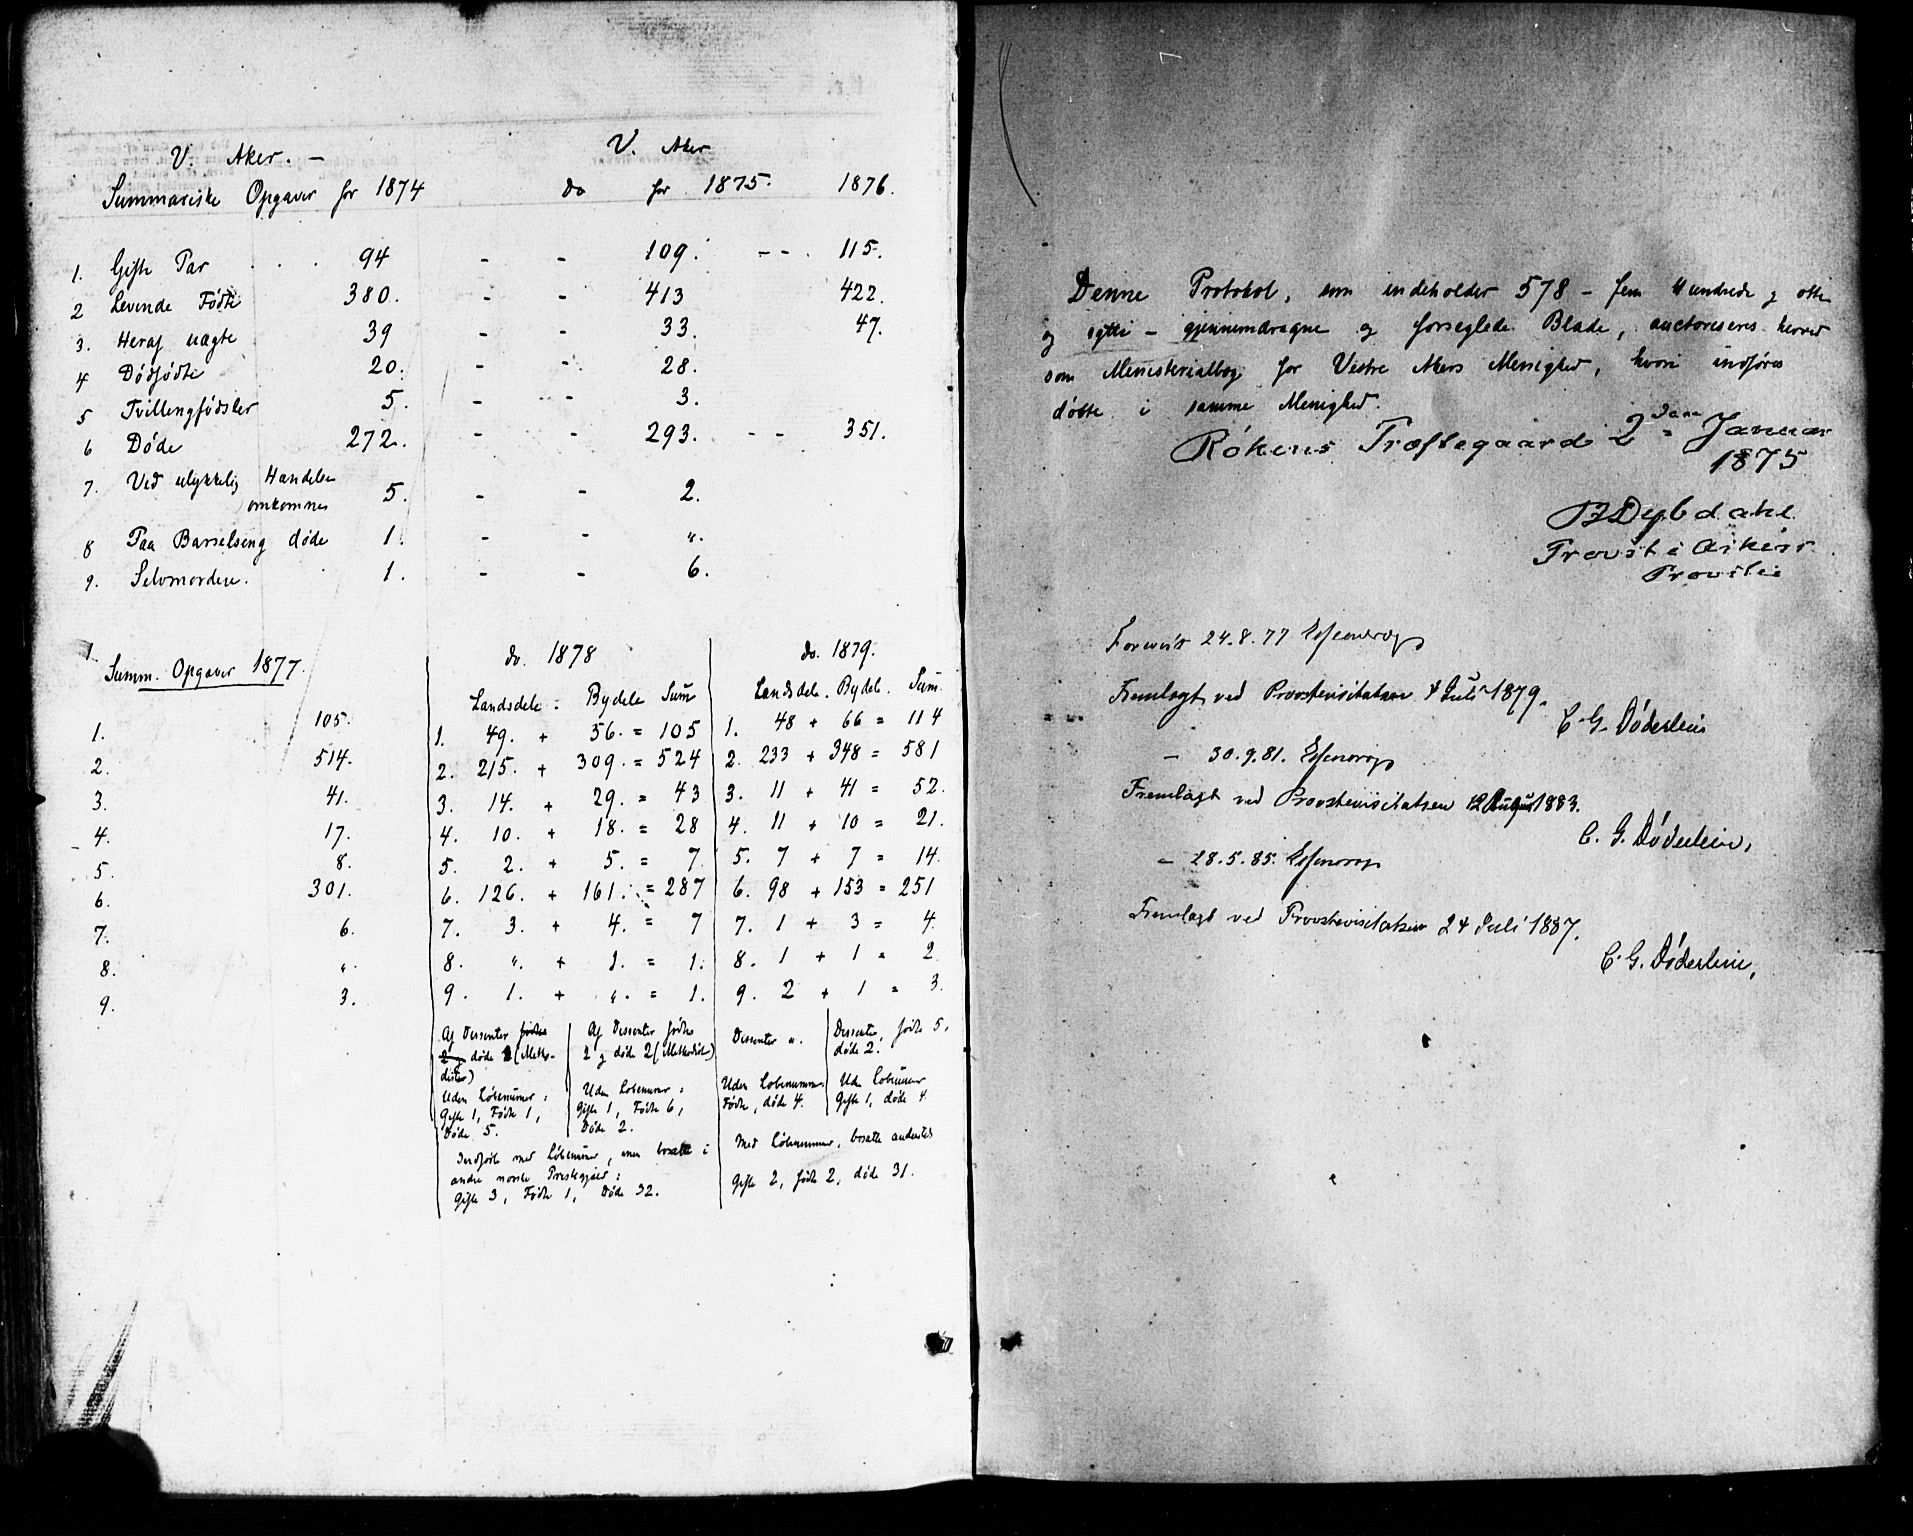 V. Aker. —
Summariske Opgaver for 1874
V. Aker
do for 1875. 1876.
1. Gifte Par . . . 94 - - 109. -- . 115.
2 Levende Fødte 380. - - 413 422.
3. Heraf uægte 39 - - 33. 47.
4 Dødfødte 20. - - 28.
5 Tvillingfødsler 5. - - 3.
6 Døde 272. - - 293. - - 351.
7. Ved ulykkelig Hændelse
omkomne 5. - - 2.
8 Paa Barselseng døde 1. - - ".
9. Selvmordere. 1. - - 6.
Summ. Opgaver 1877.
1. 105.
2. 514.
3. 41.
4. 17.
5. 8.
6. 301.
7. 6.
8. ".
9. 3.
do. 1878
Landsdele. Bydele Sum
1. 49. + 56. = 105
2. 215. + 309. = 524
3. 14. + 29. = 43
4. 10. + 18. = 28
5. 2. + 5. = 7
6. 126. + 161. = 287
7. 3. + 4. = 7
8. ". + 1. = 1.
9. 1. + ". = 1.
Af Dissenter fødte
2 og døde 2 (Metho-
dister)
Uden Løbenumer:
Gifte 1, Fødte 1,
Døde 5.
Af Dissenter fødte
2 og døde 2 (Methodister)
Uden Løbenumer:
Gifte 1, Fødte 6,
Døde 2.
Indførte med Løbenumer, men bosatte i
andre norske Præstegjæld:
Gifte 3, Fødte 1, Døde 32.
do. 1879.
Landsdele. Bydele. Sum.
1. 48 + 66 = 114
2. 233 + 348 = 581
3. 11 + 41 = 52.
4. 11 + 10 = 21.
5. 7 + 7 = 14.
6. 98 + 153 = 251
7. 1 + 3 = 4.
8. 1 + 1 = 2
9. 2 + 1 = 3.
Dissenter ".
Uden Løbenummer
Fødte, døde 4.
Dissenter fødte 5,
døde 2.
Uden Løbenumer
Gifte 1, døde 4
Med Løbenummer, bosatte andetsteds
Gifte 2, fødte 2, døde 31.
Denne Protokol, som indeholder 578 - fem Hundrede og otte
og sytti - gjennemdragne og forseglede Blade, auctoriseres herved
som Ministerialbog for Vestre Akers Menighed, hvori indføres
døbte i samme Menighed.
Røkens Præstegaard 2den Januar
1875
Dybdahl
Provst i Akers
Provstie
Forevist 24.8.77 Essendrop
Fremlagt ved Provstevisitatsen 4 Juli 1879.
C. G. Døderlein
— 30.9.81. Essendrop
Fremlagt ved Provstevisitatsen 12 August 1883.
C. G. Døderlein,
— 28.5.85. Essendrop
Fremlagt ved Provstevisitatsen 24 Juli 1887.
C. G. Døderlein,